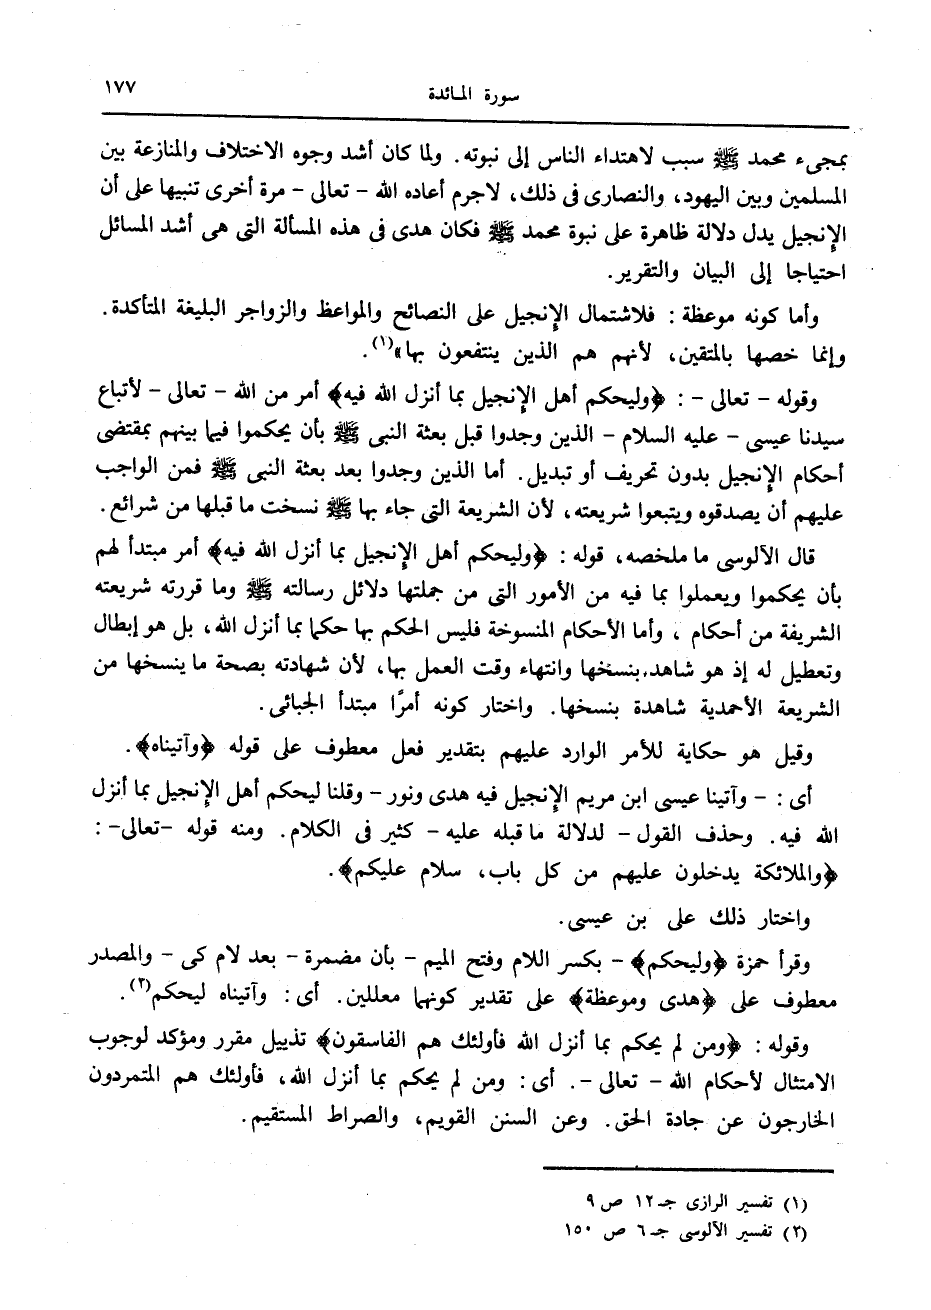 سورة المائدة ١٧٧
بمجىء محمد ﷺ سبب لاهتداء الناس إلى نبوته. ولما كان أشد وجوه الاختلاف والمنازعة بين
المسلمين وبين اليهود، والنصارى فى ذلك، لاجرم أعاده الله - تعالى - مرة أخرى تنبيها على أن
الإنجيل يدل دلالة ظاهرة على نبوة محمد ﷺ فكان هدى فى هذه المسألة التى هى أشد المسائل
احتياجا إلى البيان والتقرير.
وأما كونه موعظة : فلاشتمال الإنجيل على النصائح والمواعظ والزواجر البليغة المتأكدة.
وإنما خصها بالمتقين، لأنهم هم الذين ينتفعون بها»(١).
وقوله - تعالى - : ﴿وليحكم أهل الإنجيل بما أنزل الله فيه﴾ أمر من الله - تعالى - لأتباع
سيدنا عيسى - عليه السلام - الذين وجدوا قبل بعثة النبى ﷺ بأن يحكموا فيما بينهم بمقتضى
أحكام الإنجيل بدون تحريف أو تبديل. أما الذين وجدوا بعد بعثة النبى ﷺ فمن الواجب
عليهم أن يصدقوه ويتبعوا شريعته، لأن الشريعة التى جاء بها ﷺ نسخت ما قبلها من شرائع.
قال الآلوسى ما ملخصه، قوله : ﴿وليحكم أهل الإنجيل بما أنزل الله فيه﴾ أمر مبتدأ لهم
بأن يحكموا ويعملوا بما فيه من الأمور التى من جملتها دلائل رسالته ﷺ وما قررته شريعته
الشريفة من أحكام ، وأما الأحكام المنسوخة فليس الحكم بها حكما بما أنزل الله، بل هو إبطال
وتعطيل له إذ هو شاهد بنسخها وانتهاء وقت العمل بها، لأن شهادته بصحة ما ينسخها من
الشريعة الأحمدية شاهدة بنسخها. واختار كونه أمرًا مبتدأ الجبائى.
وقيل هو حكاية للأمر الوارد عليهم بتقدير فعل معطوف على قوله ﴿وآتيناه﴾.
أى : - وآتينا عيسى ابن مريم الإنجيل فيه هدى ونور - وقلنا ليحكم أهل الإنجيل بما أنزل
الله فيه. وحذف القول - لدلالة ما قبله عليه - كثير فى الكلام. ومنه قوله -تعالى- :
﴿والملائكة يدخلون عليهم من كل باب، سلام عليكم﴾.
واختار ذلك على بن عيسى.
وقرأ حمزة ﴿وليحكم﴾ - بكسر اللام وفتح الميم - بأن مضمرة - بعد لام كى - والمصدر
معطوف على ﴿هدى وموعظة﴾ على تقدير كونهما معللين. أى : وآتيناه ليحكم(٢).
وقوله : ﴿ومن لم يحكم بما أنزل الله فأولئك هم الفاسقون﴾ تذييل مقرر ومؤكد لوجوب
الامتثال لأحكام الله - تعالى -. أى : ومن لم يحكم بما أنزل الله، فأولئك هم المتمردون
الخارجون عن جادة الحق. وعن السنن القويم، والصراط المستقيم.
(١) تفسير الرازى جـ١٢ ص ٩
(٢) تفسير الآلوسى جـ٦ ص ١٥٠